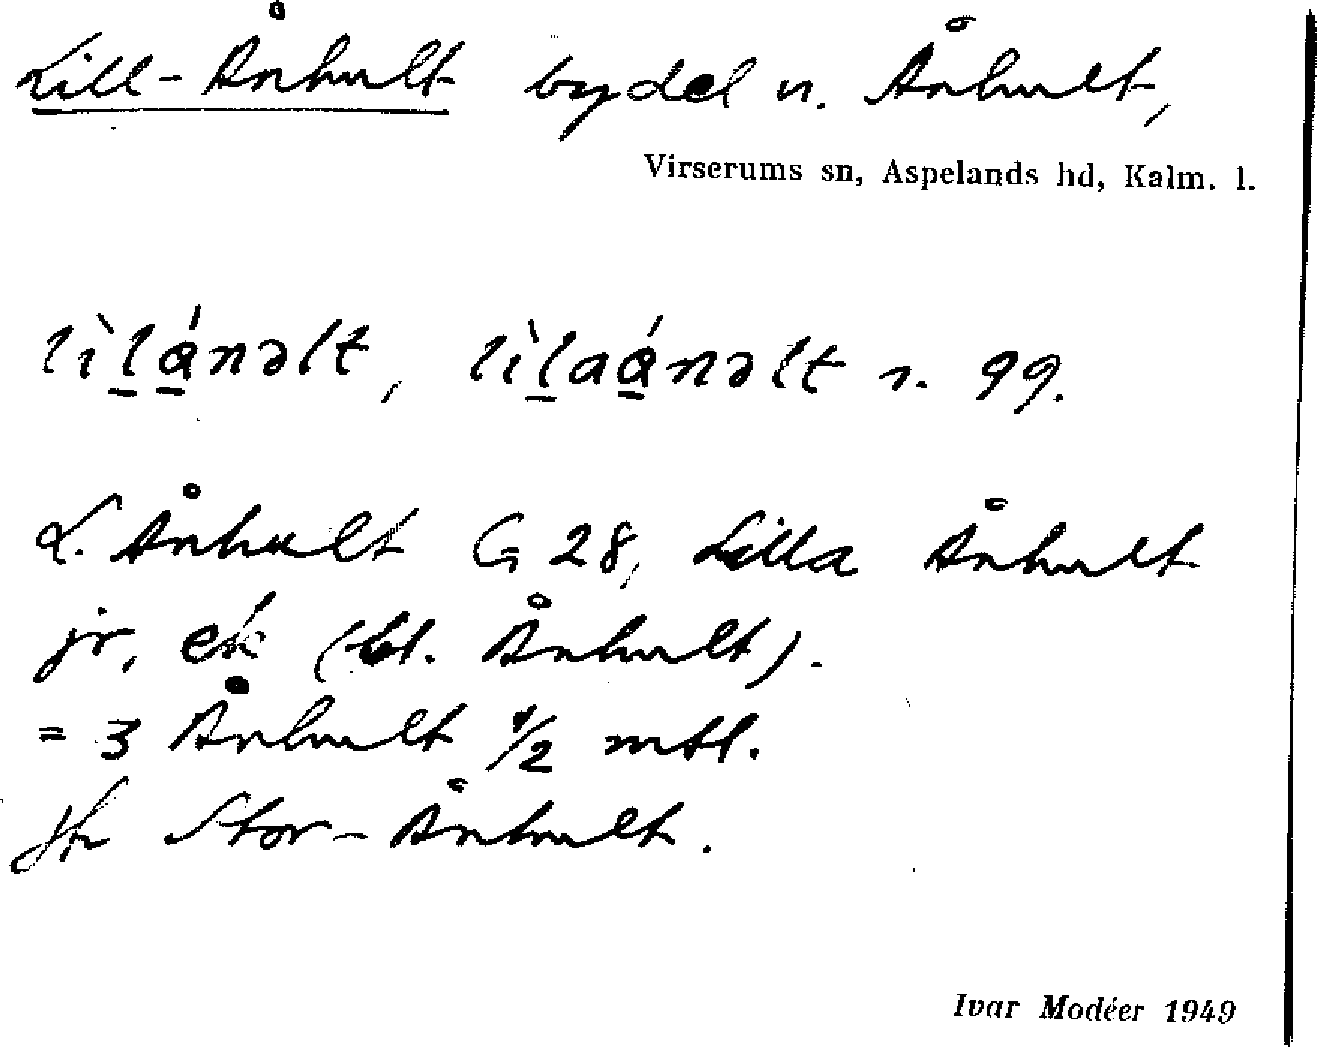 Lill-Ånhult bydel n. Ånhult,
Virserums sn, Aspelands hd, Kalm. l.
lìl̲á̲nəlt, lìl̲aá̲nəlt n. 99.
L. Ånhult G 28, Lilla Ånhult
jr, ek (bl. Ånhult).
= 3 Ånhult 1/2 mtl.
Jfr Stor-Ånhult.
Ivar Modéer 1949